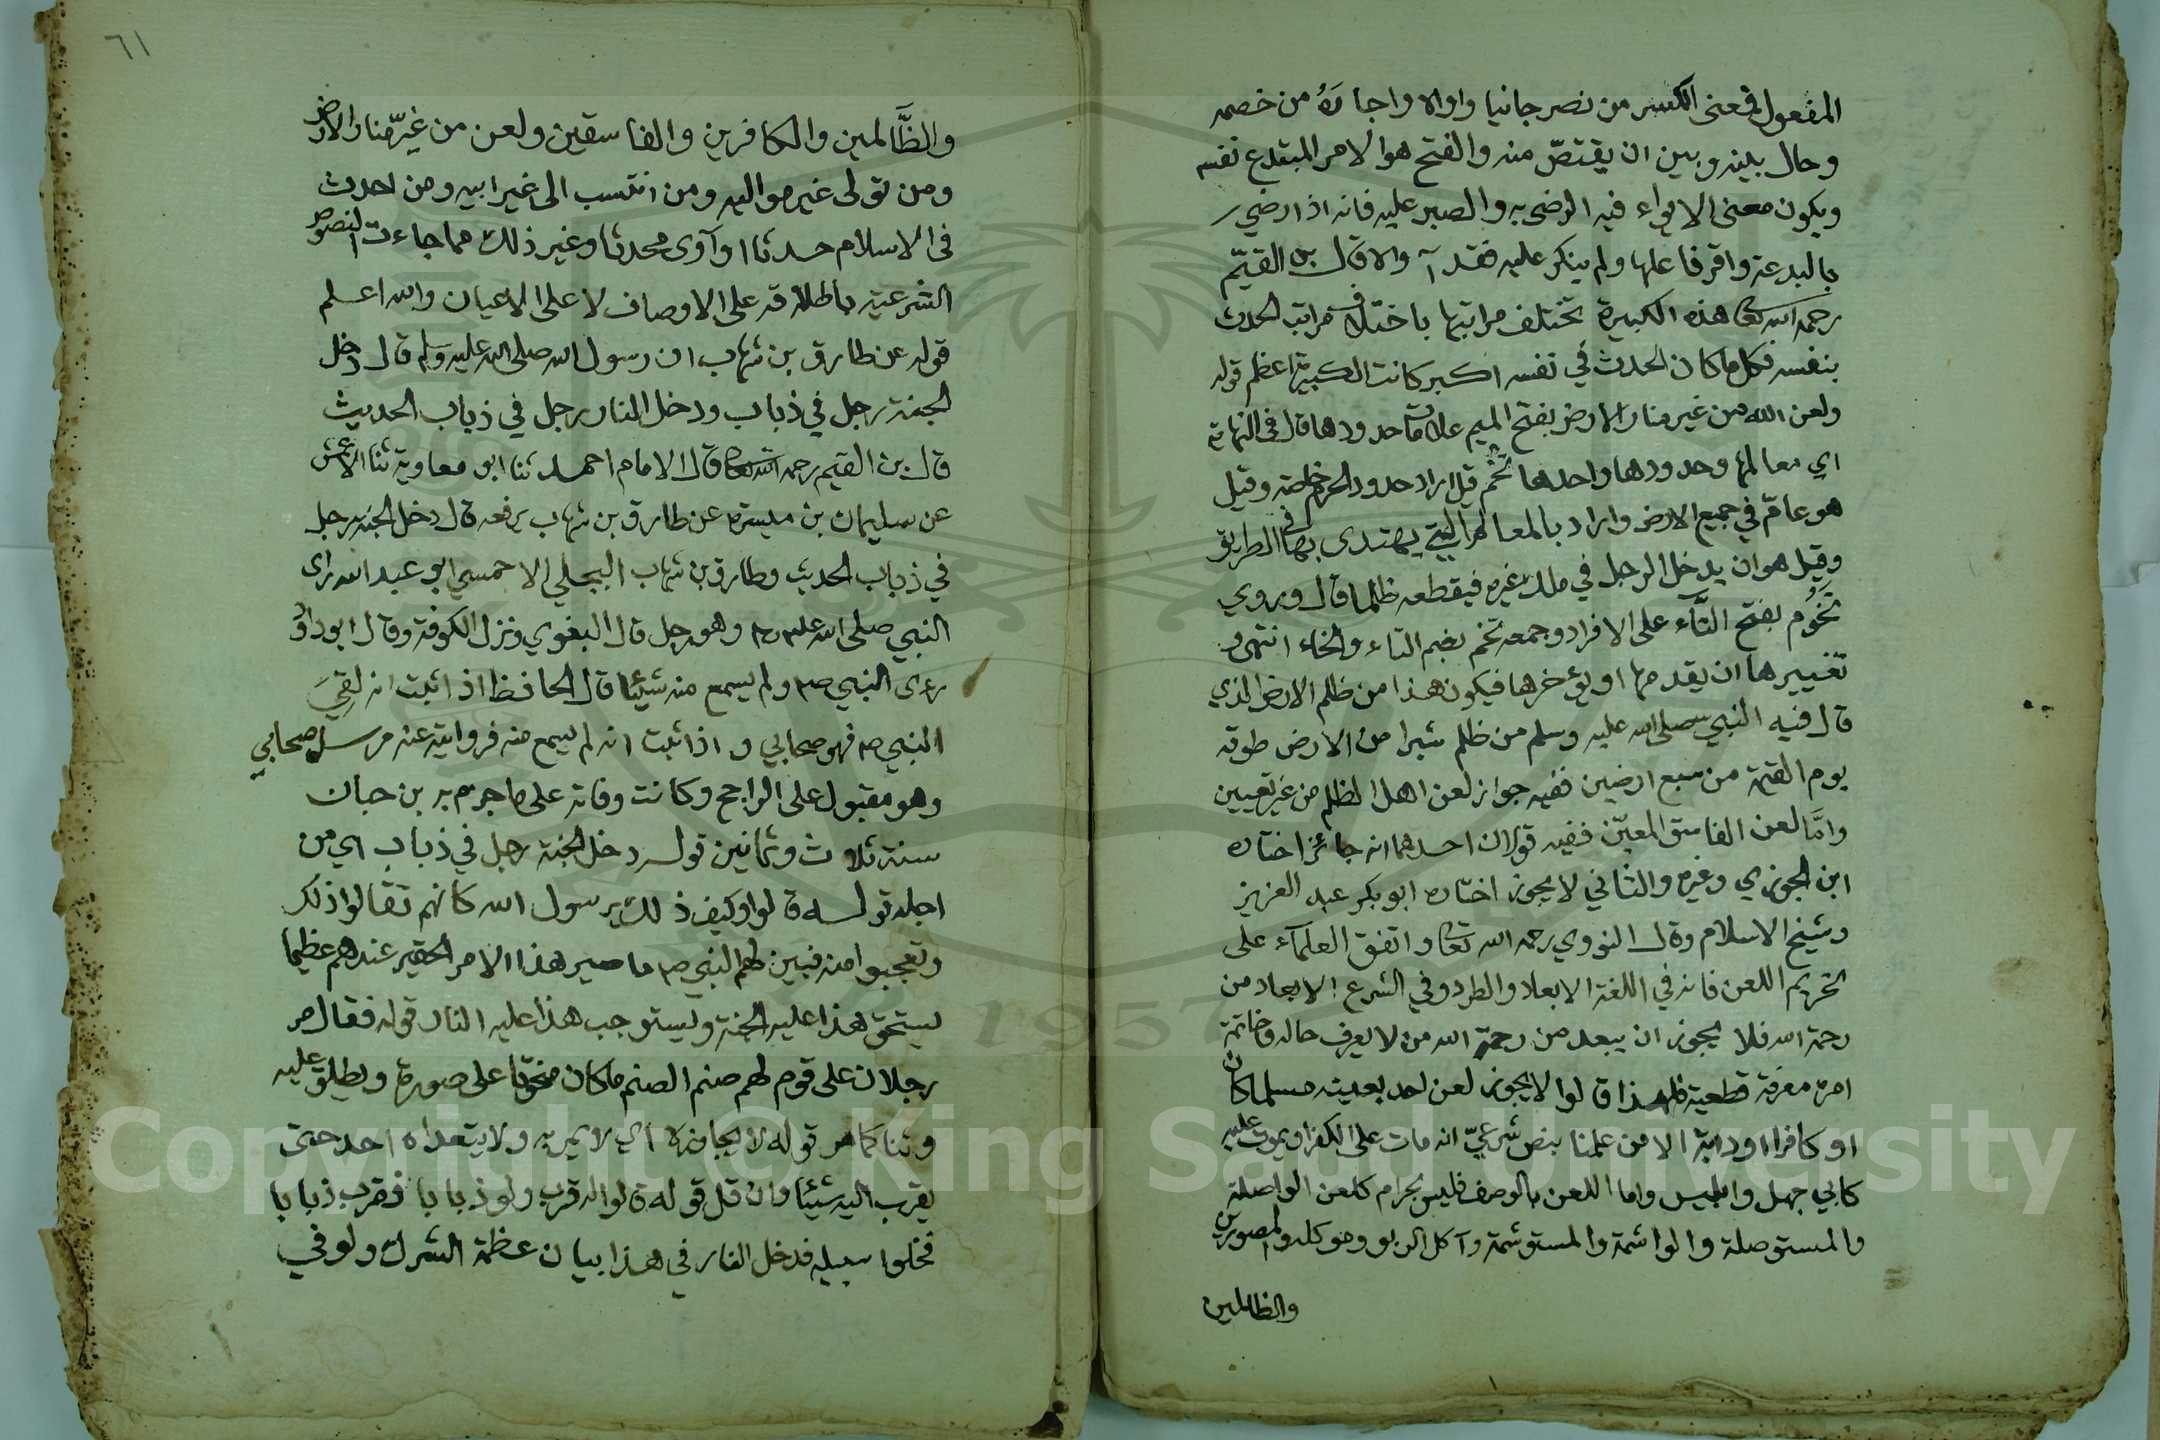 المفعول فمعنى الكسر من نصر جانيا واواه واجاره من خصمه
وحال بينه وبين ان يقتصّ منه والفتح هو الامر المبتدع نفسه
ويكون معنى الايواء فيه الرضى به والصبر عليه فانه اذا رضي
بالبدعة واقر فاعلها ولم ينكر عليه فقد آواه قال بن القيّم
رحمه الله تعا هذه الكبيرة تختلف مراتبها باختلاف مراتب الحدث
بنفسه فكل ما كان الحدث في نفسه اكبر كانت الكبيرة اعظم قوله
ولعن الله من غير منار الارض بفتح الميم علامات حدودها قال في النهاية
اي معالمها وحدودها واحدها تخم قيل اراد حدود الحرم خاصة وقيل
هو عامّ في جميع الارض واراد بالمعالم التي يهتدى بها في الطريق
وقيل هو ان يدخل الرجل في ملك غيره فيقطعه ظلما قال ويروي
تخُوم بفتح التّاء على الافراد وجمعه تخم بضم التاء والخاء انتهى و
تغييرها ان يقدمها او يؤخرها فيكون هذا من ظلم الارض الذي
قال فيه النبي صلى الله عليه وسلم من ظلم شبرا من الارض طوقه
يوم القيمة من سبع ارضين ففيه جواز لعن اهل الظلم من غير تعيين
وامّا لعن الفاسق المعيّن ففيه قولان احدهما انه جائز اختاره
ابن الجوزي وغيره والثاني لا يجوز اختاره ابو بكر عبد العزيز
وشيخ الاسلام وقال النووي رحمه الله تعا واتفق العلمآء على
تحريم اللعن فانه في اللغة الابعاد والطرد وفي الشرع الابعاد من
رحمة الله فلا يجوز ان يبعد من رحمة الله من لا يعرف حاله وخاتمة
امره معرفة قطعية فلهذا قالوا لا يجوز لعن احد بعينه مسلما كان
او كافرا او دابة الا من علمنا بنص شرعيّ انه مات على الكفر او يموت عليه
كابي جهل وابليس واما اللعن بالوصف فليس بحرام كلعن الواصلة
والمستوصلة والواشمة والمستوشمة وآكل الربو وموكله والمصورين
والظالمين
٦١
والظّالمين والكافرين والفاسقين ولعن من غيرّ منار الارض
ومن تولى غير مواليه ومن انتسب الى غير ابيه ومن احدث
في الاسلام حدثا او آوى محدثا وغير ذلك مما جاءت النصوص
الشرعية باطلاقه على الاوصاف لا على الاعيان والله اعلم
قوله عن طارق بن شهاب ان رسول الله صلى الله عليه وسلم قال دخل
الجنة رجل في ذباب ودخل النار رجل في ذباب الحديث
قال بن القيم رحمه الله تعا قال الامام احمد ثنا ابو معاوية ثنا الاعمش
عن سليمان بن ميسره عن طارق بن شهاب يرفعه قال دخل الجنة رجل
في ذباب الحديث وطارق بن شهاب البجلي الاحمسي ابو عبد الله راى
النبي صلى الله عليه وم وهو رجل قال البغوي ونزل الكوفة وقال ابو داوُد
رءى النبي صم ولم يسمع منه شيئا قال الحافظ اذا ثبت انه لقيَ
النبي صم فهو صحابي واذا ثبت انه لم يسمع منه فروايته عنه مرسل صحابي
وهو مقبول على الراجح وكانت وفاته على ما جزم به بن حبان
سنة ثلاث وثمانين قوله دخل الجنة رجل في ذباب اي من
اجله قوله قالوا وكيف ذلك يرسول الله كانهم تقالوا ذلك
وتعجبوا منه فبين لهم النبي صم ما صير هذا الامر الحقير عندهم عظيما
يستحق هذا عليه الجنة ويستوجب هذا عليه النار قوله فقال مر
رجلان على قوم لهم صنم الصنم ما كان منحوتا على صورة ويطلق عليه
وثنا كما مر قوله لا يجاوزه اي لا يمر به ولا يتعداه احد حتى
يقرب اليه شيئا وان قل قوله قالوا له قرب ولو ذبابا فقرب ذبابا
فخلوا سبيله فدخل النار في هذا بيان عظمة الشرك ولو في
Copyright © King Saud University
1957